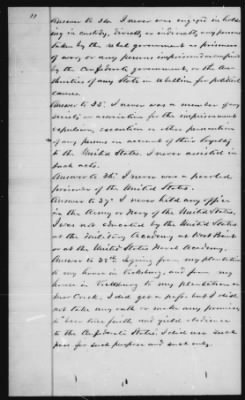 11
Answer to 34. I never was engaged in hold-
ing in custody, directly or indirectly any persons
taken by the rebel government as prisoners
of war, or any persons imprisoned or confined
by the Confederate government, or the au-
thorities of any State in rebellion for political
causes.
Answer to 35. I never was a member of any
society or association for the imprisonment
expulsion, execution or other persecution
of any persons on account of their loyalty
to the United States. I never assisted in
such acts.
Answer to 36. I never was a paroled
prisoner of the United States.
Answer to 37. I never held any office
in the Army or Navy of the United States,
I was not educated by the United States
at the Military Academy at West Point
or at the United States Naval Academy.
Answer to 38th. In going from my plantation
to my house in Vicksburg, and from my
house in Vicksburg to my plantation on
Creek, I did get a pass, but I did
not take any oath or make any promise
to bear true faith and yield obedience
to the Confederate States. I did use such
pass for such purpose and such only.